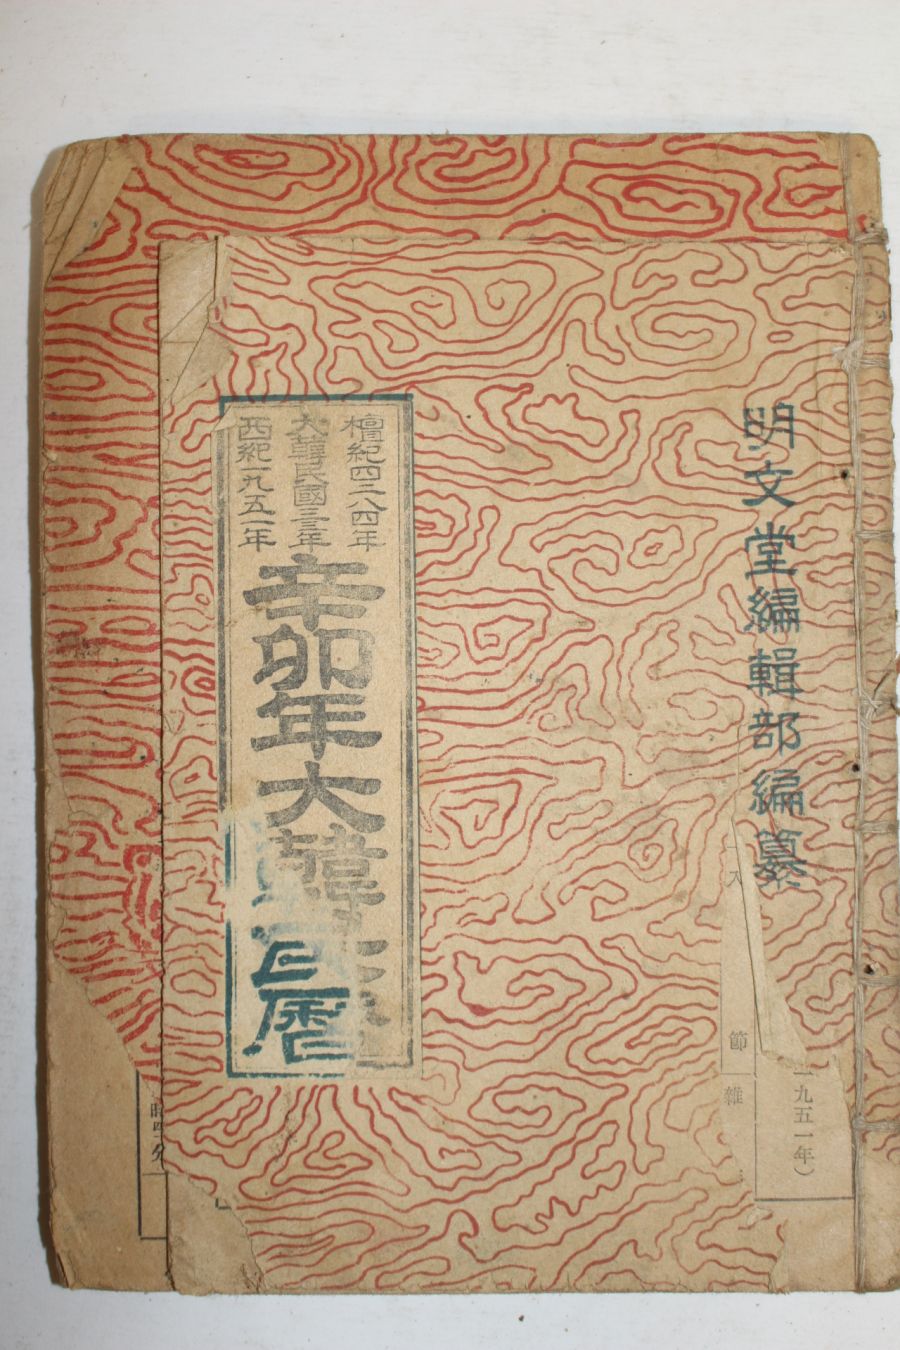 明文堂編輯部編纂
檀紀四二八四年
大韓民國三三年
西紀一九五一年
辛卯年大韓民曆
一九五一年)
節
雜
入